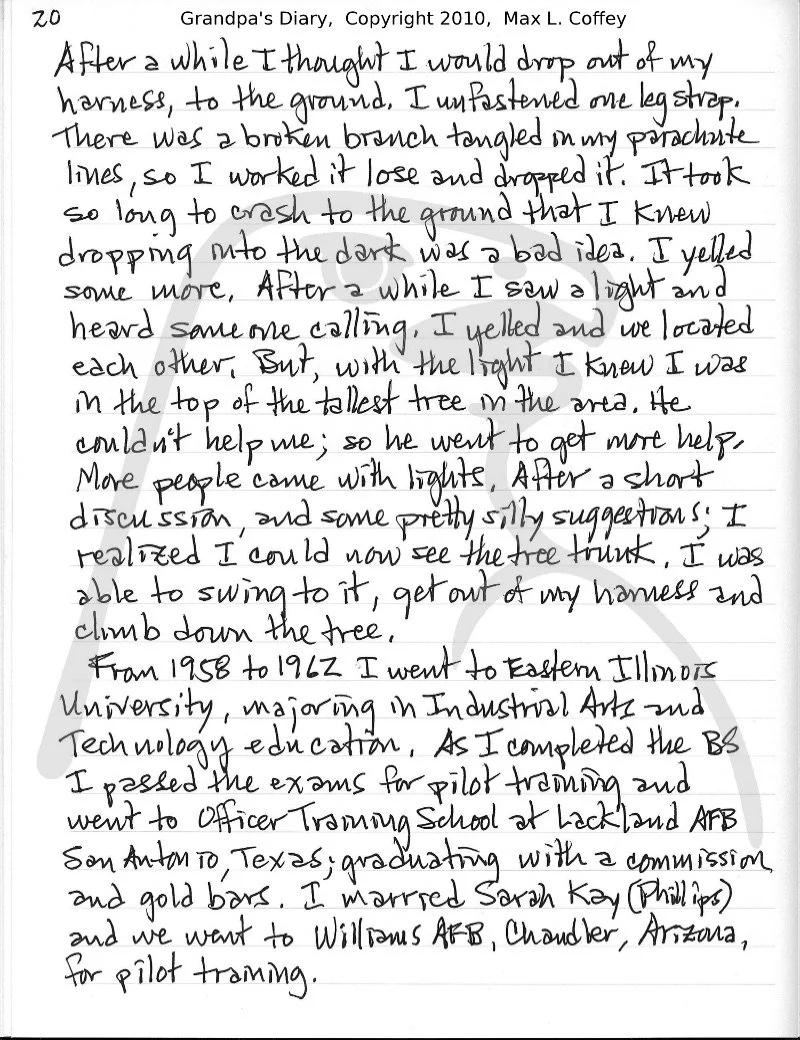 20
Grandpa's Diary, Copyright 2010, Max L. Coffey
After a while I thought I would drop out of my
harness, to the ground. I unfastened one leg strap.
There was a broken branch tangled in my parachute
lines, so I worked it lose and dropped it. It took
so long to crash to the ground that I knew
dropping into the dark was a bad idea. I yelled
some more. After a while I saw a light and
heard someone calling. I yelled and we located
each other. But, with the light I knew I was
in the top of the tallest tree in the area. He
couldn't help me; so he went to get more help.
More people came with lights. After a short
discussion, and some pretty silly suggestions; I
realized I could now see the tree trunk. I was
able to swing to it, get out of my harness and
climb down the tree.
From 1958 to 1962 I went to Eastern Illinois
University, majoring in Industrial Arts and
Technology education. As I completed the BS
I passed the exams for pilot training and
went to Officer Training School at Lackland AFB
San Antonio, Texas; graduating with a commission
and gold bars. I married Sarah Kay (Phillips)
and we went to Williams AFB, Chandler, Arizona,
for pilot training.